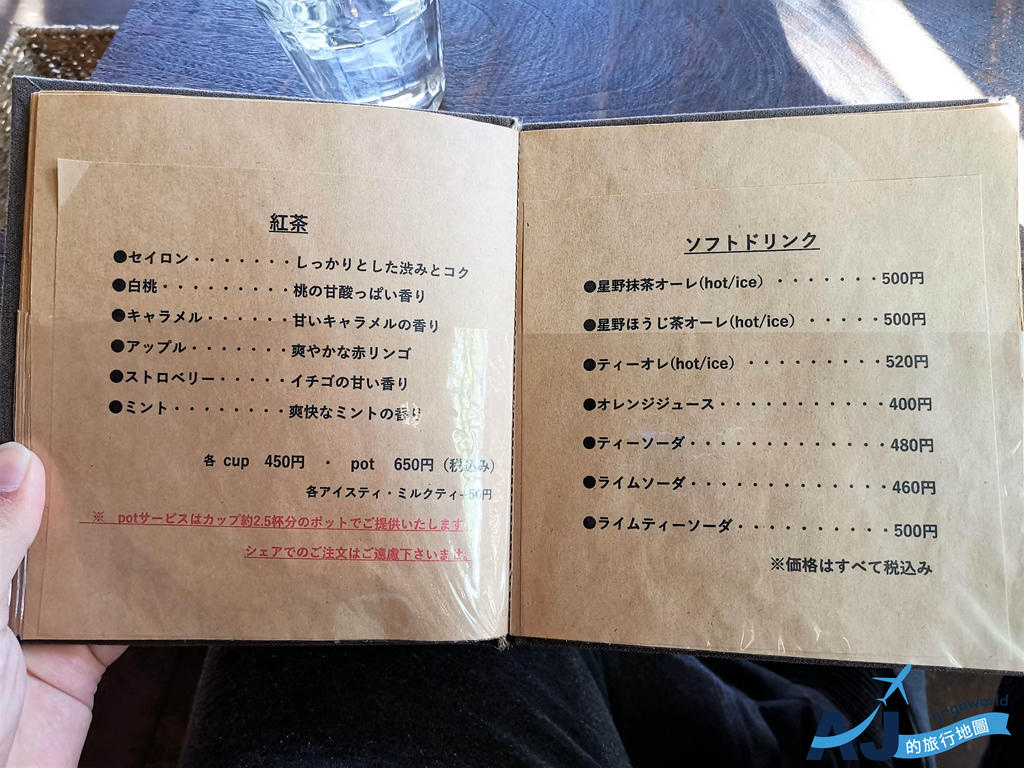 紅茶
●セイロン・・・・・・・しっかりとした渋みとコク
●白桃・・・・・・・・・桃の甘酸っぱい香り
●キャラメル・・・・・・甘いキャラメルの香り
●アップル・・・・・・・爽やかな赤リンゴ
●ストロベリー・・・・・イチゴの甘い香り
●ミント・・・・・・・・爽快なミントの香り
各 cup 450円 ・ pot 650円（税込み）
各アイスティ・ミルクティ+50円
※ potサービスはカップ約2.5杯分のポットでご提供いたします。
シェアでのご注文はご遠慮下さいませ。
ソフトドリンク
●星野抹茶オーレ(hot/ice) ・・・・・・・500円
●星野ほうじ茶オーレ(hot/ice) ・・・・・500円
●ティーオレ(hot/ice) ・・・・・・・・・520円
●オレンジジュース・・・・・・・・・・・・400円
●ティーソーダ・・・・・・・・・・・・・・480円
●ライムソーダ・・・・・・・・・・・・・・460円
●ライムティーソーダ・・・・・・・・・・・500円
※価格はすべて税込み
AJ gogoworld
的旅行地圖